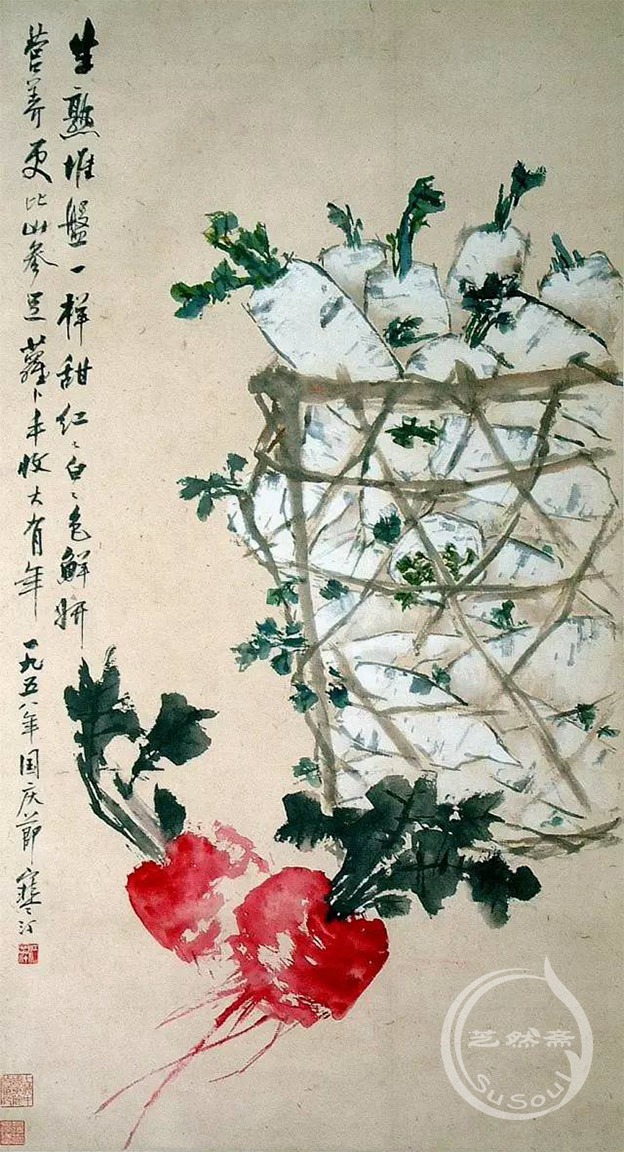 生熟堆盘一样甜红々白々色鲜妍
营养更比山参足萝卜丰收大有年 一九五八年国庆节 寒汀
芝然斋
SuSoul